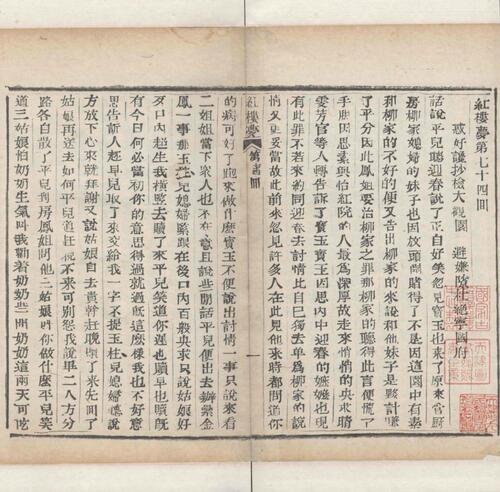 紅樓夢第七十四回
惑奸讒抄檢大觀園　避嫌隙杜絕寧國府
話說平兒聽迎春說了正自好笑忽見寶玉也來了原來管廚
房柳家媳婦的妹子也因放頭開賭得了不是這園中有素
和柳家的不好的便又告出柳家的來說和他妹子是夥計賺
了平分因此鳳姐要治柳家之罪那柳家的聽得此言便慌了
手脚因思素與怡紅院的人最為深厚故走來悄悄的央求晴
雯芳官等人轉告訴了寶玉寶玉因思內中迎春的嬤嬤也現
有此罪不若來約同迎春去討情比自己獨去單為柳家的說
情又更妥當故此前來忽見許多人在此見他來時都問道你
紅樓夢　第七十四回　一
的病可好了跑來做什麼寶玉不便說出討情一事只說來看
二姐姐當下衆人也不在意且說些閒話平兒便出去辦纍金
鳳一事那玉柱兒媳婦緊跟在後口內百般央求只說姑娘好
歹口內超生我橫豎去贖了來平兒笑道你遲也贖早也贖旣
有今日何必當初你的意思得過就過旣這麼樣我也不好意
思告訴人趁早兒取了來交給我一字不提玉柱兒媳婦聽說
方放下心來就拜謝又說姑娘自去貴幹赶晚贖了來先回了
姑娘再送去如何平兒道赶晚不來可別怨我說畢二人方分
路各自散了平兒到房鳳姐問他三姑娘叫你做什麼平兒笑
道三姑娘怕奶奶生氣叫我勸着奶奶些問奶奶這兩天可吃